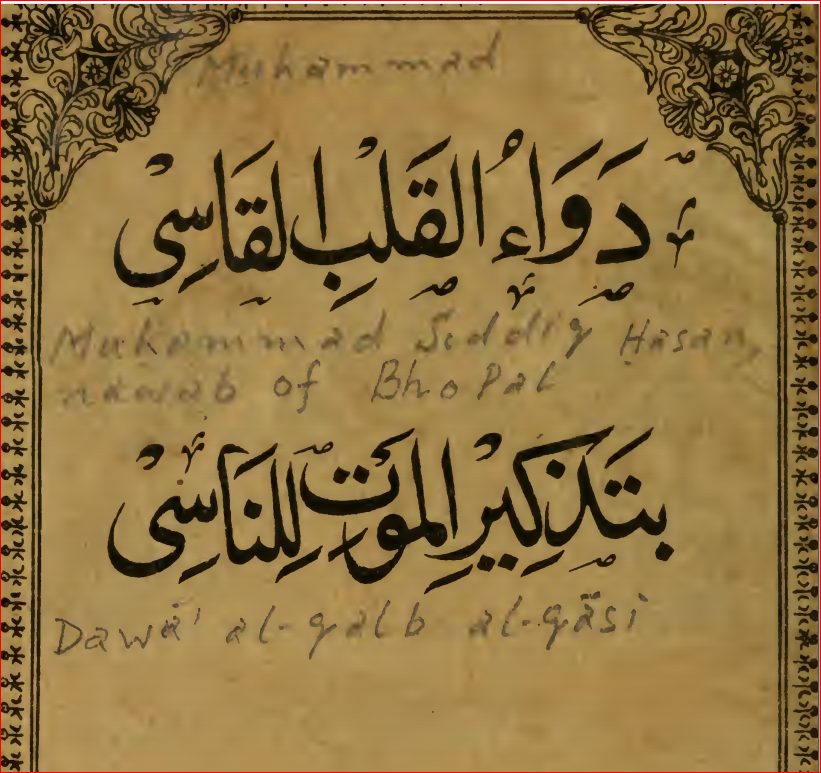 Muhammad
دَوَاءُ القَلْبِ القَاسِیْ
Muḥammad Ṣiddīq Ḥasan,
nawab of Bhopal
بِتَذْكِيْرِ المَوْتِ لِلنَّاسِیْ
Dawā' al-qalb al-qāsi